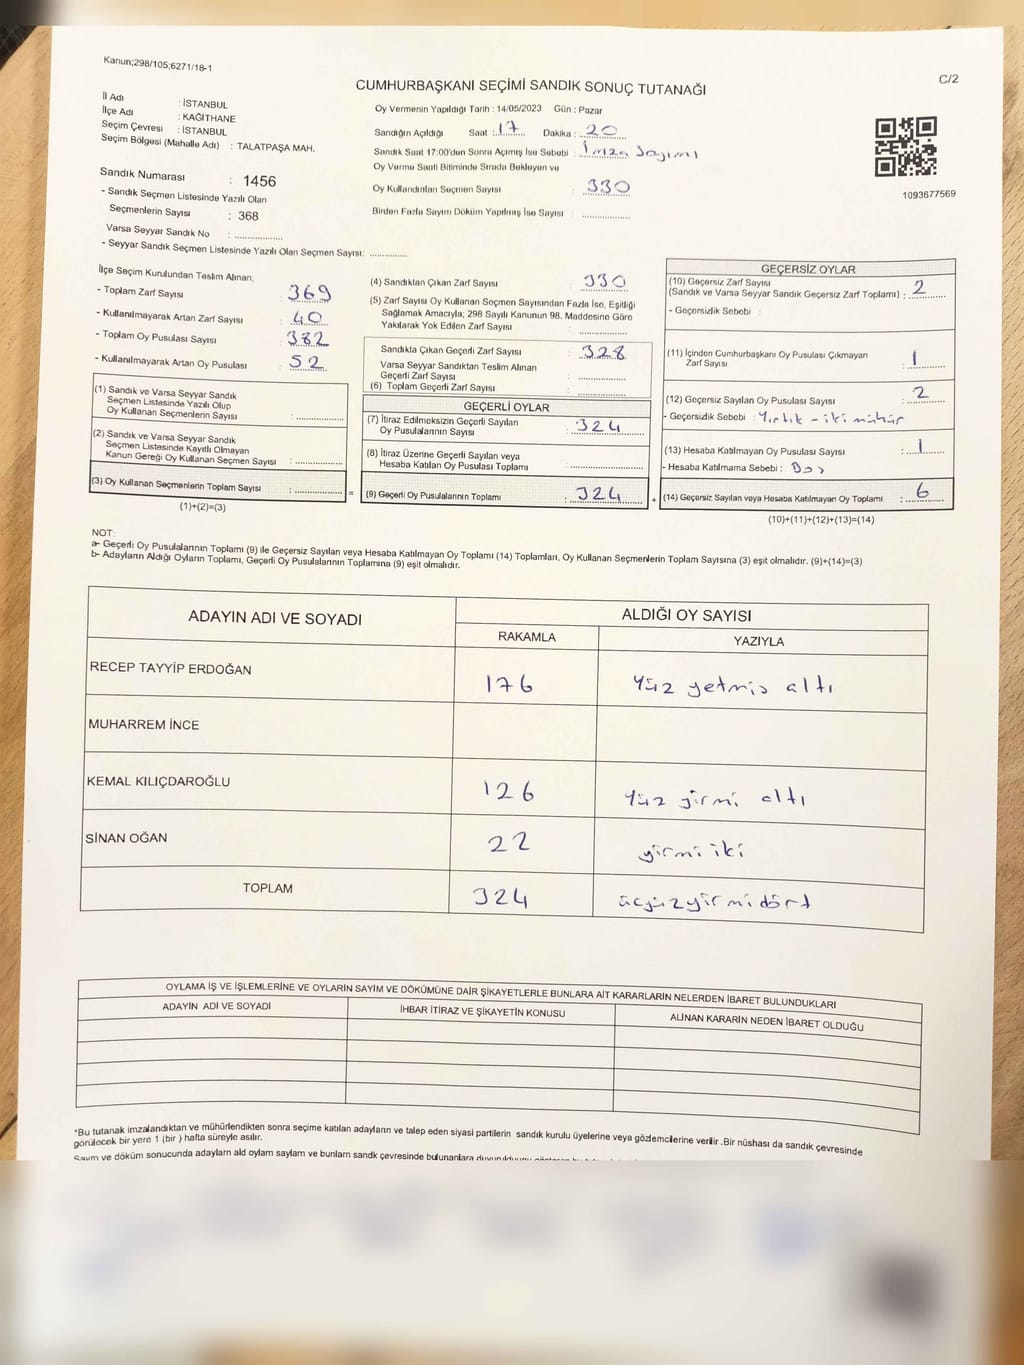 Kanun;298/105;6271/18-1
C/2
CUMHURBAŞKANI SEÇİMİ SANDIK SONUÇ TUTANAĞI
İl Adı : İSTANBUL
İlçe Adı : KAĞITHANE
Seçim Çevresi : İSTANBUL
Seçim Bölgesi (Mahalle Adı) : TALATPAŞA MAH.
Sandık Numarası : 1456
- Sandık Seçmen Listesinde Yazılı Olan
Seçmenlerin Sayısı : 368
Varsa Seyyar Sandık No : ..............
- Seyyar Sandık Seçmen Listesinde Yazılı Olan Seçmen Sayısı: ............
Oy Vermenin Yapıldığı Tarih : 14/05/2023 Gün : Pazar
Sandığın Açıldığı Saat : 17 Dakika : 20
Sandık Saat 17:00'den Sonra Açımış İse Sebebi : İmza Sayımı
Oy Verme Saati Bitiminde Sırada Bekleyen ve
Oy Kullandırılan Seçmen Sayısı : 330
Birden Fazla Sayım Döküm Yapılmış İse Sayısı : ..............
1093677569
İlçe Seçim Kurulundan Teslim Alınan;
- Toplam Zarf Sayısı : 369
- Kullanılmayarak Artan Zarf Sayısı : 40
- Toplam Oy Pusulası Sayısı : 382
- Kullanılmayarak Artan Oy Pusulası : 52
(1) Sandık ve Varsa Seyyar Sandık
Seçmen Listesinde Yazılı Olup
Oy Kullanan Seçmenlerin Sayısı : ..............
(2) Sandık ve Varsa Seyyar Sandık
Seçmen Listesinde Kayıtlı Olmayan
Kanun Gereği Oy Kullanan Seçmen Sayısı : ..............
(3) Oy Kullanan Seçmenlerin Toplam Sayısı : .............. =
(1)+(2)=(3)
(4) Sandıktan Çıkan Zarf Sayısı : 330
(5) Zarf Sayısı Oy Kullanan Seçmen Sayısından Fazla İse, Eşitliği
Sağlamak Amacıyla; 298 Sayılı Kanunun 98. Maddesine Göre
Yakılarak Yok Edilen Zarf Sayısı : ..............
Sandıkta Çıkan Geçerli Zarf Sayısı : 328
Varsa Seyyar Sandıktan Teslim Alınan
Geçerli Zarf Sayısı : ..............
(6) Toplam Geçerli Zarf Sayısı : ..............
GEÇERLİ OYLAR
(7) İtiraz Edilmeksizin Geçerli Sayılan
Oy Pusulalarının Sayısı : 324
(8) İtiraz Üzerine Geçerli Sayılan veya
Hesaba Katılan Oy Pusulası Toplamı : ..............
(9) Geçerli Oy Pusulalarının Toplamı : 324 +
GEÇERSİZ OYLAR
(10) Geçersiz Zarf Sayısı
(Sandık ve Varsa Seyyar Sandık Geçersiz Zarf Toplamı) : 2
- Geçersizlik Sebebi :
(11) İçinden Cumhurbaşkanı Oy Pusulası Çıkmayan
Zarf Sayısı : 1
(12) Geçersiz Sayılan Oy Pusulası Sayısı : 2
- Geçersizlik Sebebi : Yırtık - iki mühür
(13) Hesaba Katılmayan Oy Pusulası Sayısı : 1
- Hesaba Katılmama Sebebi : Boş
(14) Geçersiz Sayılan veya Hesaba Katılmayan Oy Toplamı : 6
(10)+(11)+(12)+(13)=(14)
NOT:
a- Geçerli Oy Pusulalarının Toplamı (9) ile Geçersiz Sayılan veya Hesaba Katılmayan Oy Toplamı (14) Toplamları, Oy Kullanan Seçmenlerin Toplam Sayısına (3) eşit olmalıdır. (9)+(14)=(3)
b- Adayların Aldığı Oyların Toplamı, Geçerli Oy Pusulalarının Toplamına (9) eşit olmalıdır.
ADAYIN ADI VE SOYADI ALDIĞI OY SAYISI
RAKAMLA YAZIYLA
RECEP TAYYİP ERDOĞAN 176 Yüz yetmiş altı
MUHARREM İNCE
KEMAL KILIÇDAROĞLU 126 Yüz yirmi altı
SİNAN OĞAN 22 yirmi iki
TOPLAM 324 üçyüzyirmidört
OYLAMA İŞ VE İŞLEMLERİNE VE OYLARIN SAYIM VE DÖKÜMÜNE DAİR ŞİKAYETLERLE BUNLARA AİT KARARLARIN NELERDEN İBARET BULUNDUKLARI
ADAYIN ADI VE SOYADI İHBAR İTİRAZ VE ŞİKAYETİN KONUSU ALINAN KARARIN NEDEN İBARET OLDUĞU
*Bu tutanak imzalandıktan ve mühürlendikten sonra seçime katılan adayların ve talep eden siyasi partilerin sandık kurulu üyelerine veya gözlemcilerine verilir .Bir nüshası da sandık çevresinde
görülecek bir yere 1 (bir ) hafta süreyle asılır.
Sayım ve döküm sonucunda adayların aldı oyların sayları ve bunların sandk çevresinde bulunanlara